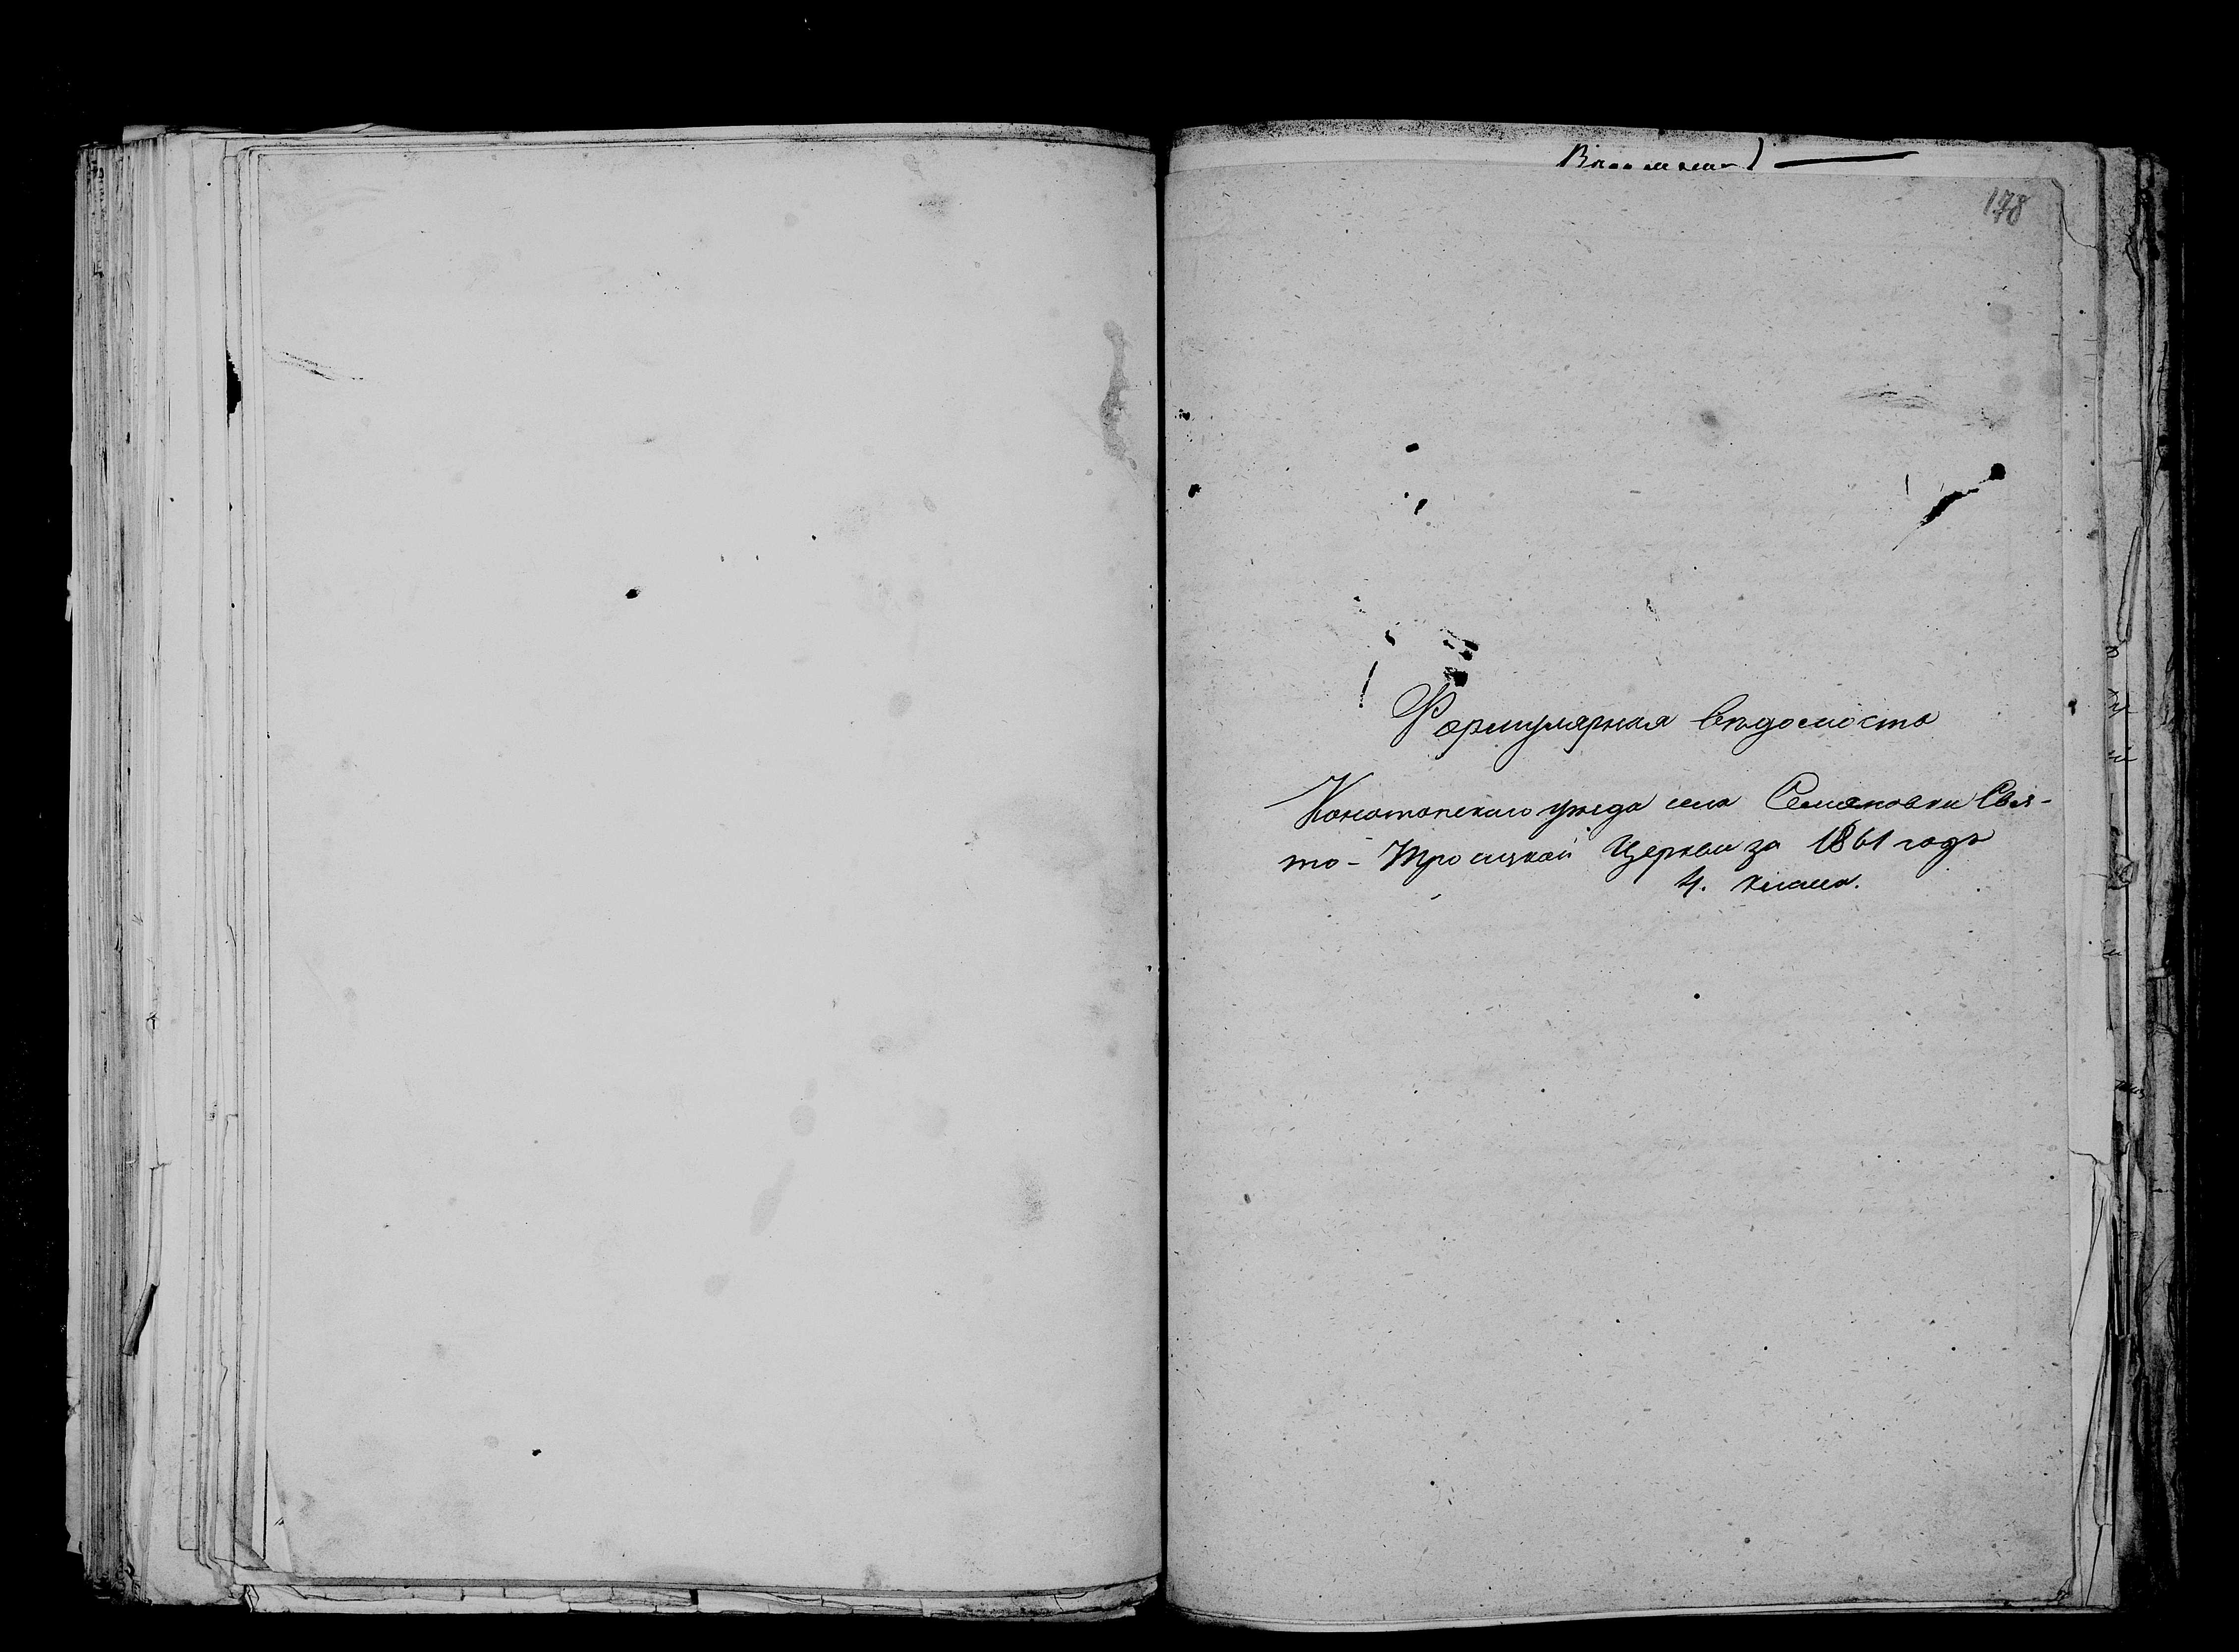 178
Формулярная вѣдомость
Конотопскаго уѣзда села Семяновки Свя-
то-Троицкой Церкви за 1861 годъ
4. класса.